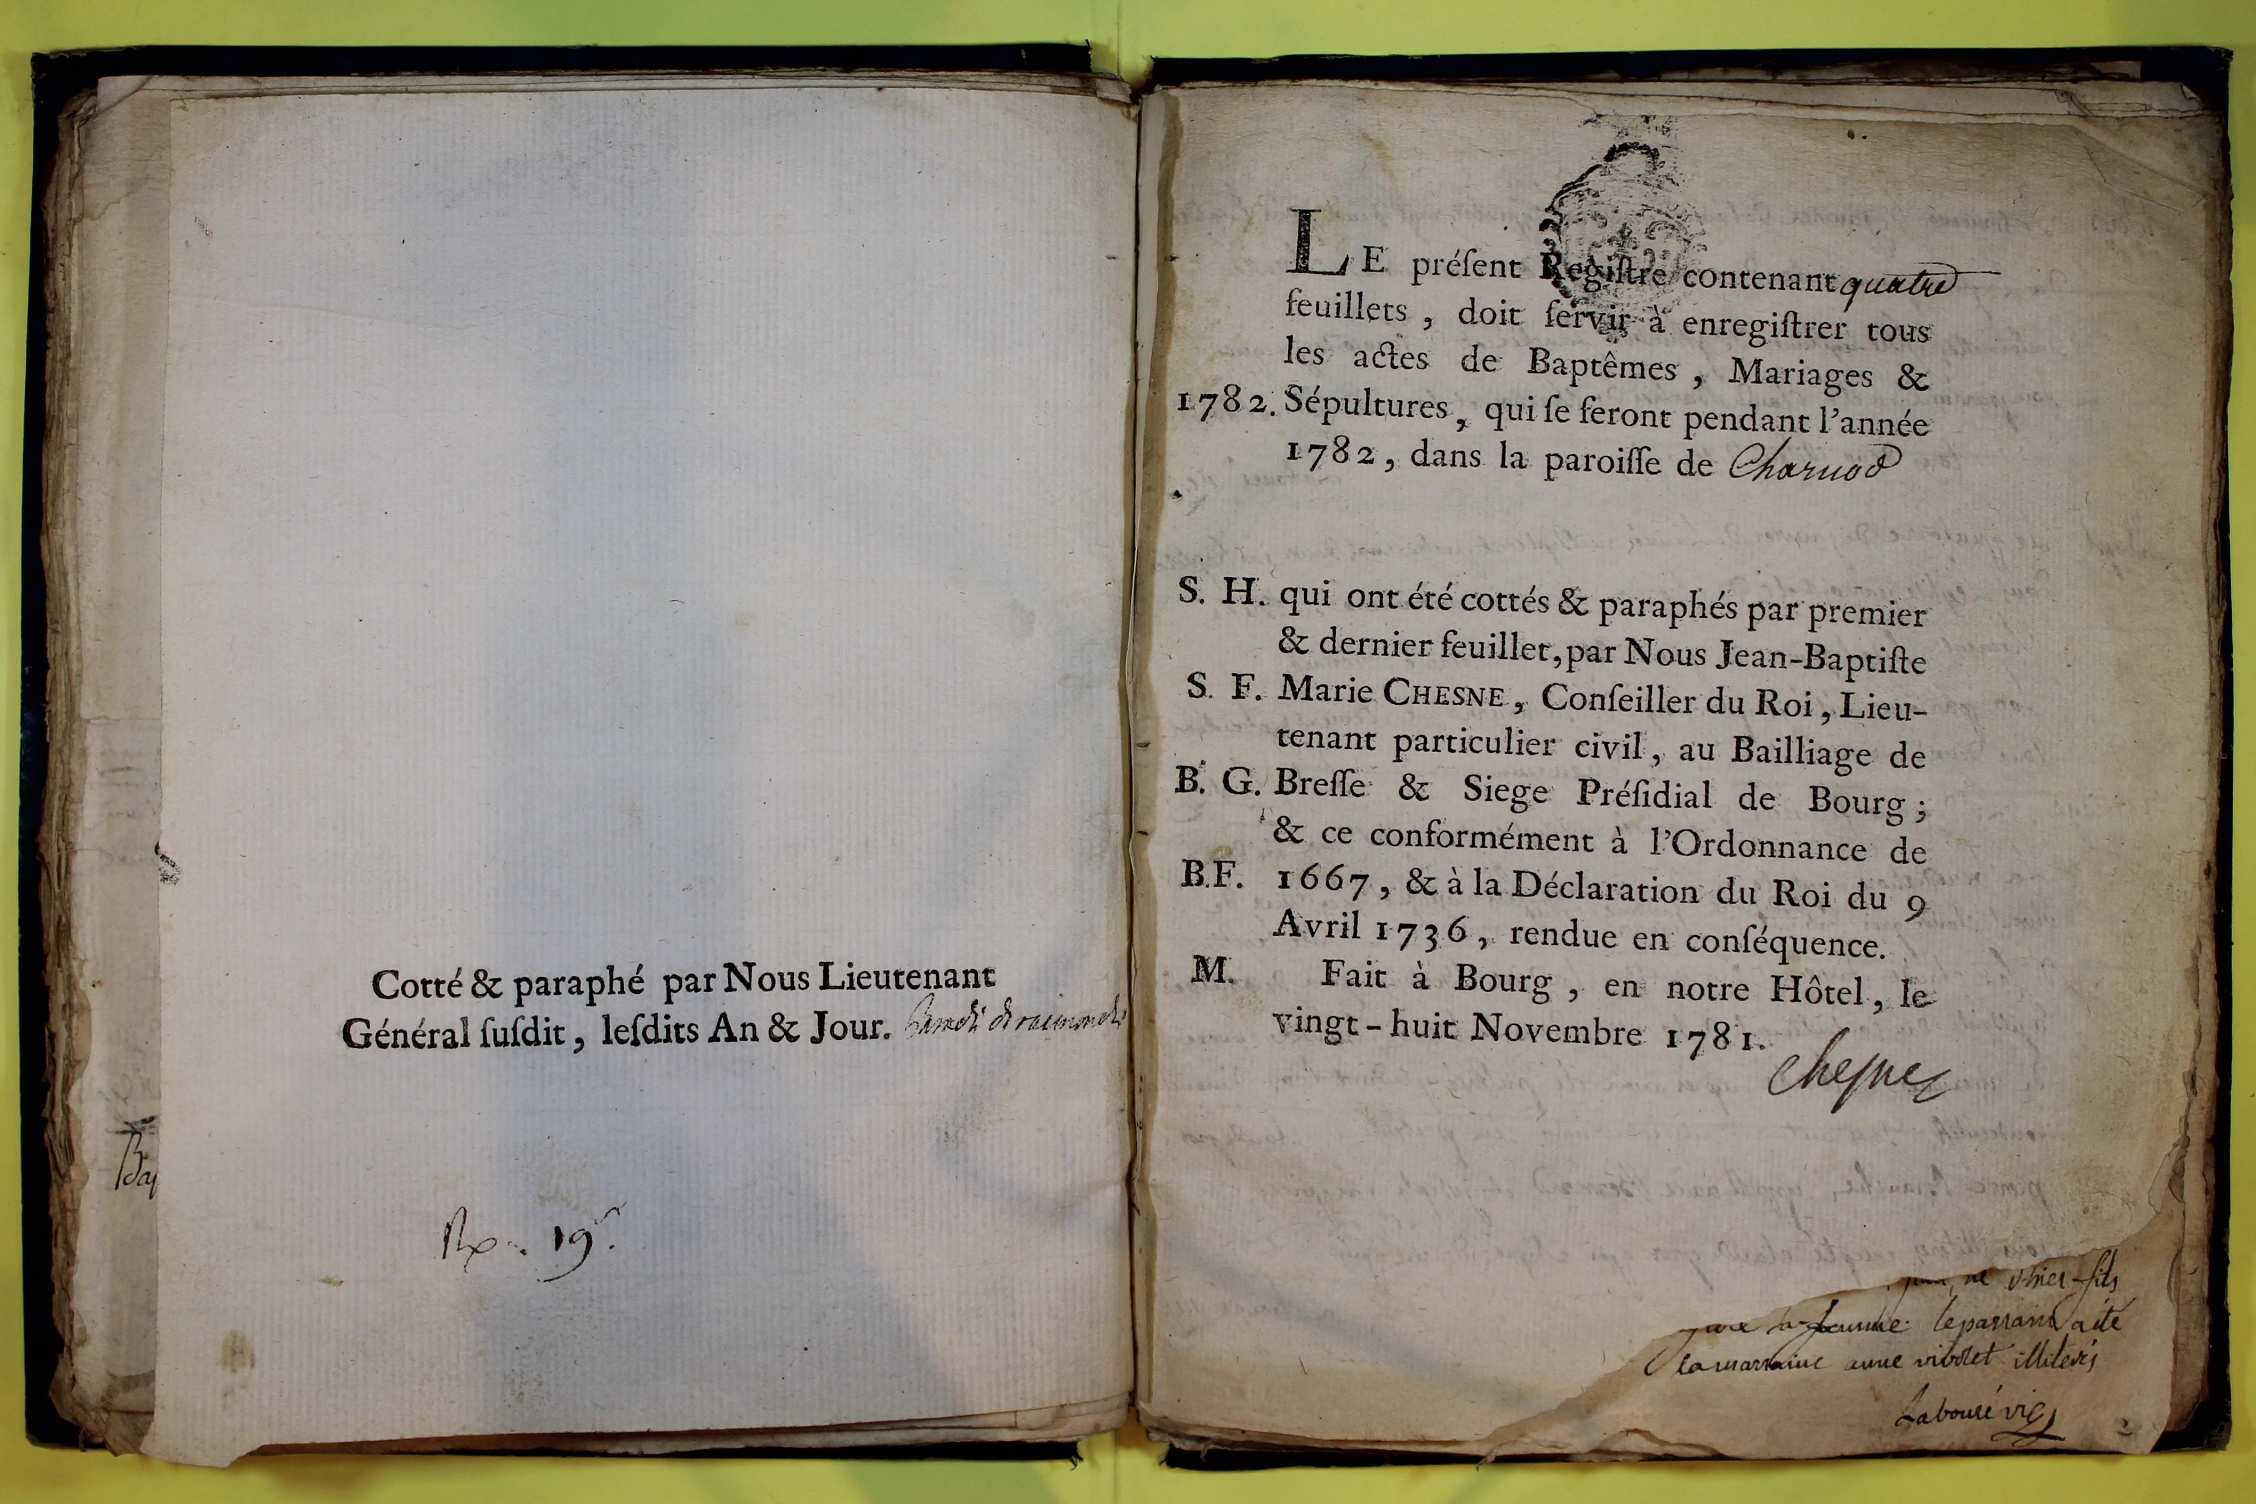 Cotté & paraphé par Nous Lieutenant
Général ſuſdit, leſdits An & Jour.
19.
Bap
LE préſent Regiſtre contenant quatre
feuillets, doit ſervir à enregiſtrer tous
les actes de Baptêmes, Mariages &
1782. Sépultures, qui ſe feront pendant l'année
1782, dans la paroiſſe de Charnod
S. H. qui ont été cottés & paraphés par premier
& dernier feuillet, par Nous Jean-Baptiſte
S. F. Marie CHESNE, Conſeiller du Roi, Lieu-
tenant particulier civil, au Bailliage de
B. G. Breſſe & Siege Préſidial de Bourg;
& ce conformément à l'Ordonnance de
B.F. 1667, & à la Déclaration du Roi du 9
Avril 1736, rendue en conſéquence.
M. Fait à Bourg, en notre Hôtel, le
vingt-huit Novembre 1781.
Chesne
fils
femme le parrain a été
la marraine anne vibolet illiterés